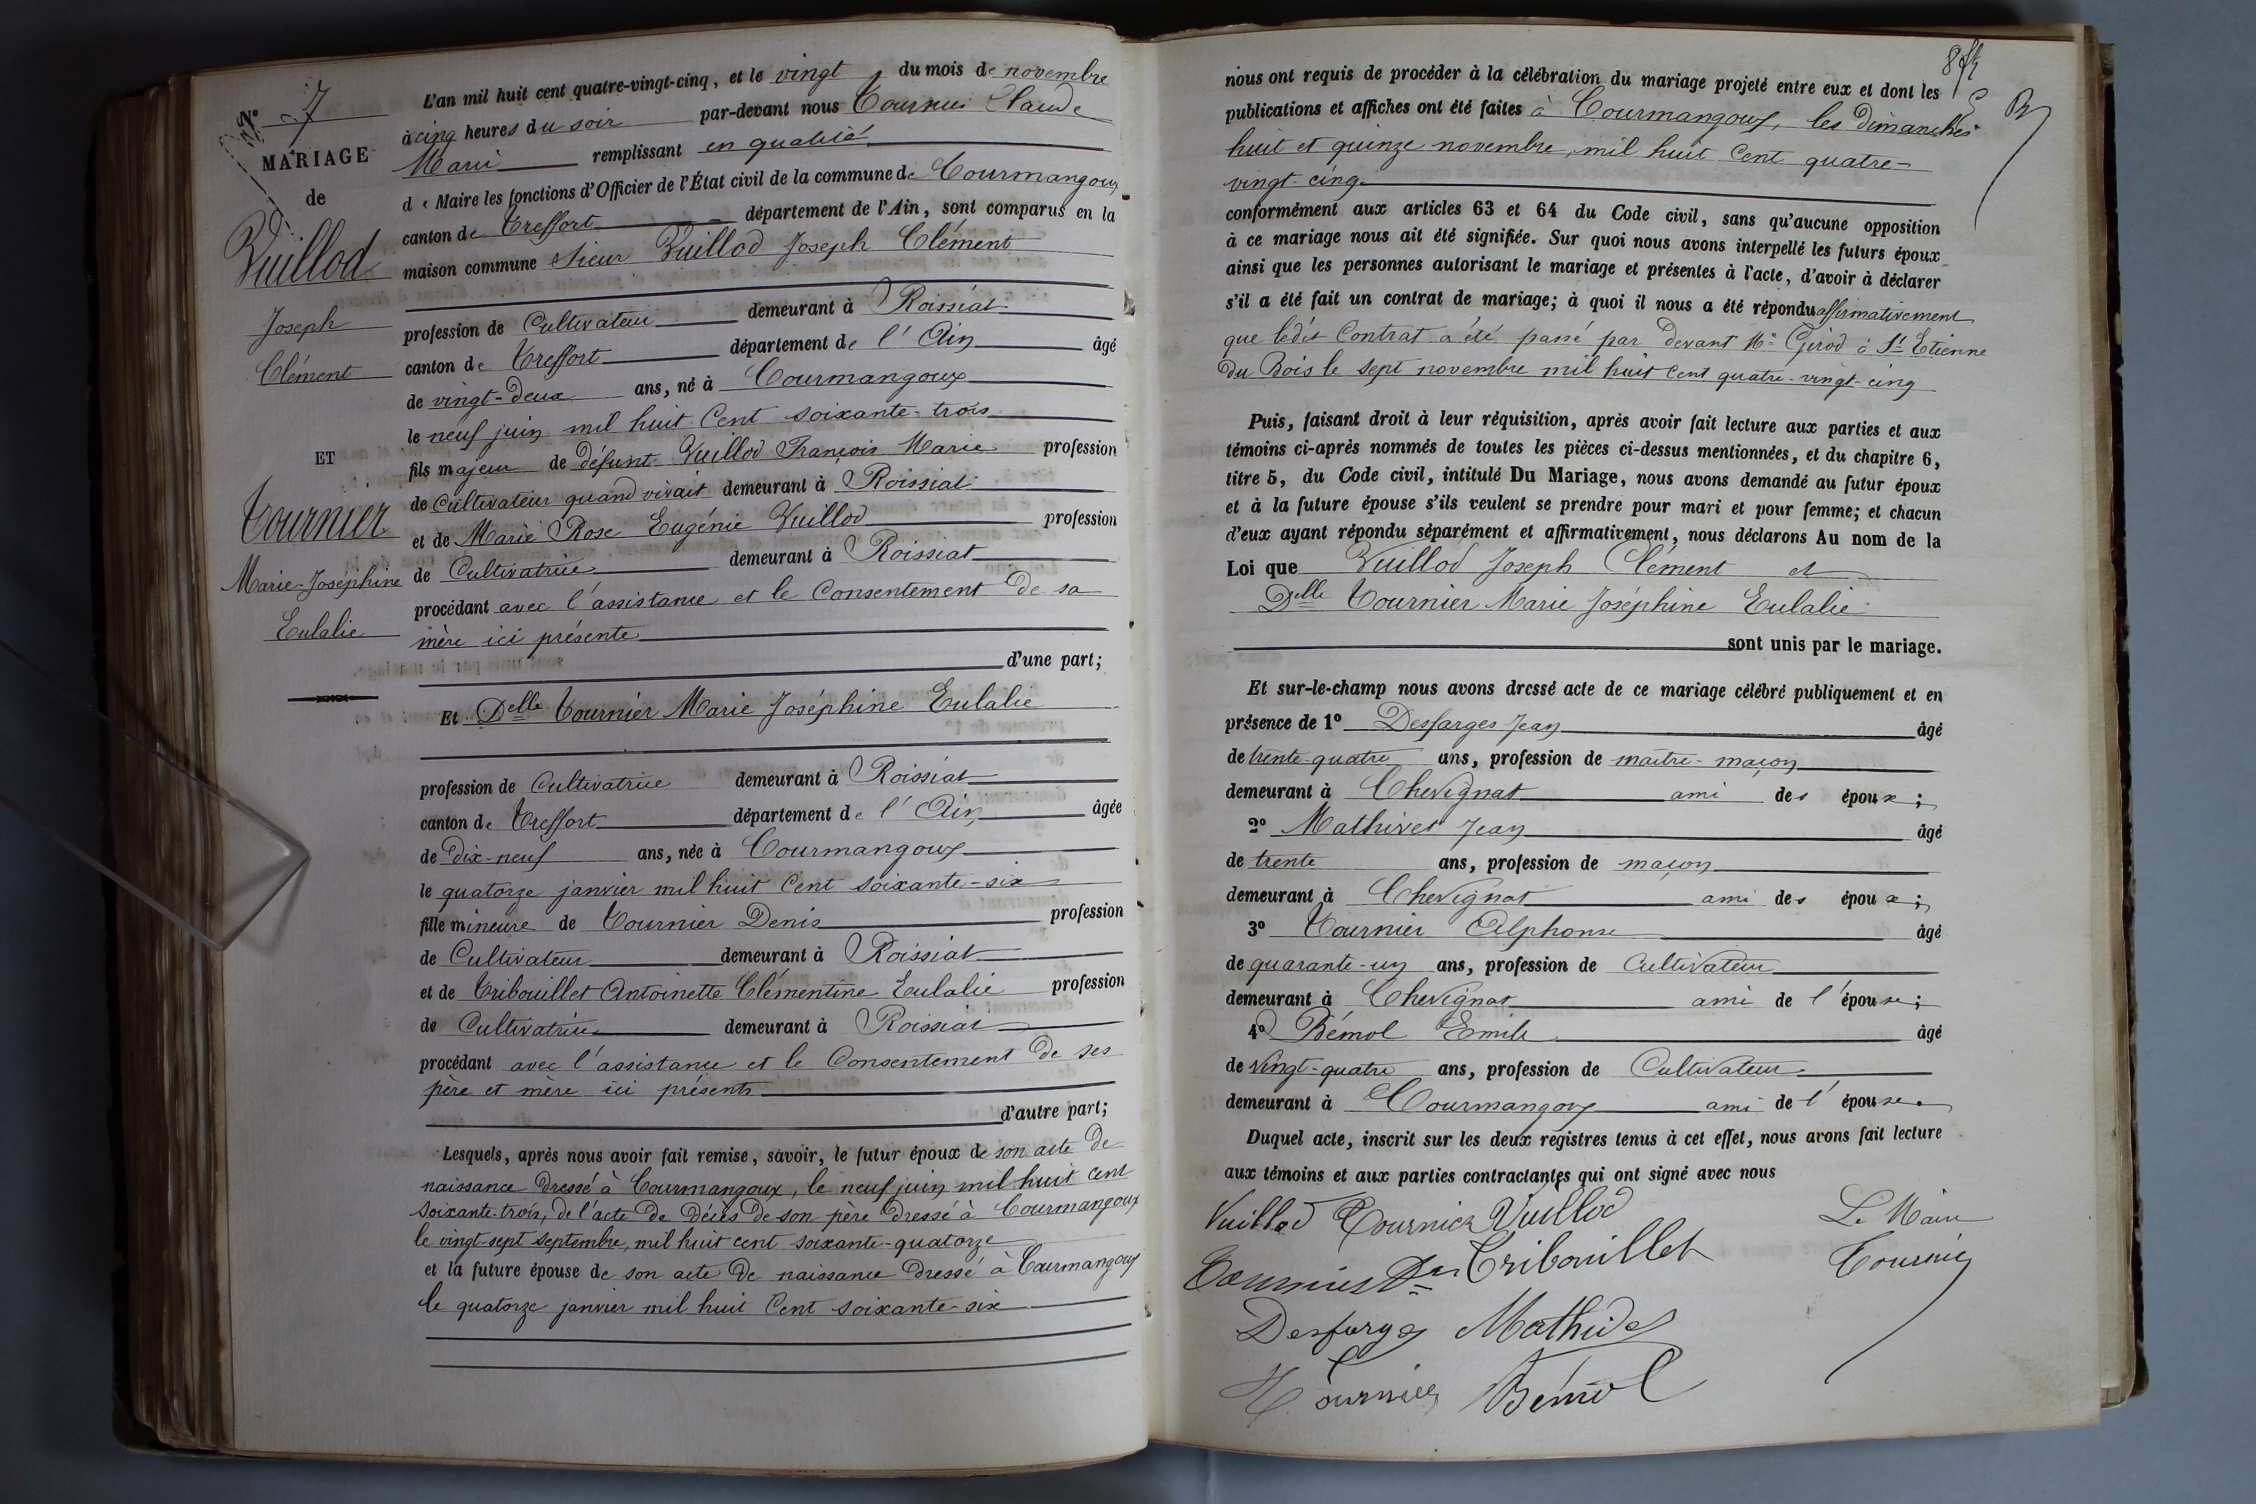 N° 7
MARIAGE
de
Vuillod
Joseph
Clément
ET
Tournier
Marie-Joséphine
Eulalie
L'an mil huit cent quatre-vingt-cinq, et le vingt du mois de novembre
à cinq heures du soir par-devant nous Tournier Claude
Marie remplissant en qualité
de Maire les fonctions d'Officier de l'État civil de la commune de Courmangoux
canton de Treffort département de l'Ain, sont comparus en la
maison commune Sieur Vuillod Joseph Clément
profession de Cultivateur demeurant à Roissiat
canton de Treffort département de l'Ain âgé
de vingt-deux ans, né à Courmangoux
le neuf juin mil huit cent soixante-trois
fils majeur de défunt Vuillod François Marie profession
de Cultivateur quand vivait demeurant à Roissiat
et de Marie Rose Eugénie Vuillod profession
de Cultivatrice demeurant à Roissiat
procédant avec l'assistance et le Consentement de sa
mère ici présente
d'une part;
Et Delle Tournier Marie Joséphine Eulalie
profession de Cultivatrice demeurant à Roissiat
canton de Treffort département de l'Ain âgée
de dix-neuf ans, née à Courmangoux
le quatorze janvier mil huit Cent soixante-six
fille mineure de Tournier Denis profession
de Cultivateur demeurant à Roissiat
et de Tribouillet Antoinette Clémentine Eulalie profession
de Cultivatrice demeurant à Roissiat
procédant avec l'assistance et le Consentement de ses
père et mère ici présents
d'autre part;
Lesquels, après nous avoir fait remise, savoir, le futur époux de son acte de
naissance dressé à Courmangoux, le neuf juin mil huit cent
soixante-trois, de l'acte de décès de son père dressé à Courmangoux
le vingt-sept septembre, mil huit cent soixante-quatorze
et la future épouse de son acte de naissance dressé à Courmangoux
le quatorze janvier mil huit Cent soixante-six
nous ont requis de procéder à la célébration du mariage projeté entre eux et dont les
publications et affiches ont été faites à Courmangoux, les dimanches
huit et quinze novembre, mil huit Cent quatre-
vingt-cinq
conformément aux articles 63 et 64 du Code civil, sans qu'aucune opposition
à ce mariage nous ait été signifiée. Sur quoi nous avons interpellé les futurs époux
ainsi que les personnes autorisant le mariage et présentes à l'acte, d'avoir à déclarer
s'il a été fait un contrat de mariage; à quoi il nous a été répondu affirmativement
que ledit Contrat a été passé par devant Me Girod à St Etienne
du Bois le sept novembre mil huit cent quatre-vingt-cinq
Puis, faisant droit à leur réquisition, après avoir fait lecture aux parties et aux
témoins ci-après nommés de toutes les pièces ci-dessus mentionnées, et du chapitre 6,
titre 5, du Code civil, intitulé Du Mariage, nous avons demandé au futur époux
et à la future épouse s'ils veulent se prendre pour mari et pour femme; et chacun
d'eux ayant répondu séparément et affirmativement, nous déclarons Au nom de la
Loi que Vuillod Joseph Clément et
Delle Tournier Marie Joséphine Eulalie
sont unis par le mariage.
Et sur-le-champ nous avons dressé acte de ce mariage célébré publiquement et en
présence de 1° Desfarges Jean âgé
de trente-quatre ans, profession de maître-maçon
demeurant à Chevignat ami des époux;
2° Mathivet Jean âgé
de trente ans, profession de maçon
demeurant à Chevignat ami des époux;
3° Tournier Alphonse âgé
de quarante-un ans, profession de Cultivateur
demeurant à Chevignat ami de l'épouse;
4° Bémol Emile âgé
de vingt-quatre ans, profession de Cultivateur
demeurant à Courmangoux ami de l'épouse.
Duquel acte, inscrit sur les deux registres tenus à cet effet, nous avons fait lecture
aux témoins et aux parties contractantes qui ont signé avec nous
Vuillod Tournier Vuillod Le Maire
Tournier Tribouillet Tournier
Desfarges Mathivet
Tournier Bémol